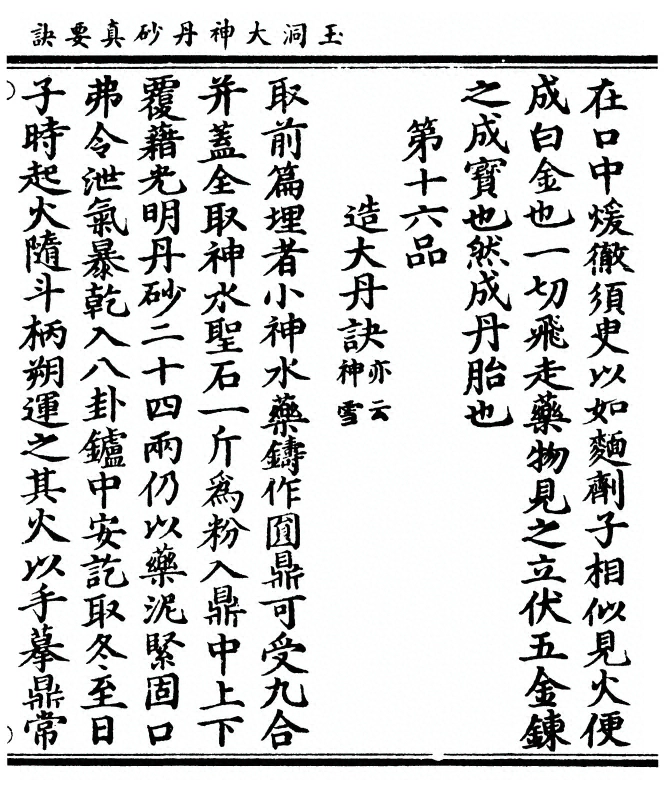 玉洞大神丹砂真要訣
在口中煖徹須㬰以如麵劑子相似見火便
成白金也一切飛走藥物見之立伏五金鍊
之成寶也然成丹胎也
第十六品
造大丹訣亦云神雪
取前篇埋者小神水藥鑄作圓鼎可受九合
并蓋全取神水聖石一斤爲粉入鼎中上下
覆藉光明丹砂二十四兩仍以藥泥緊固口
弗令泄氣暴乾入八卦鑪中安訖取冬至日
子時起火隨斗柄朔運之其火以手摹鼎常